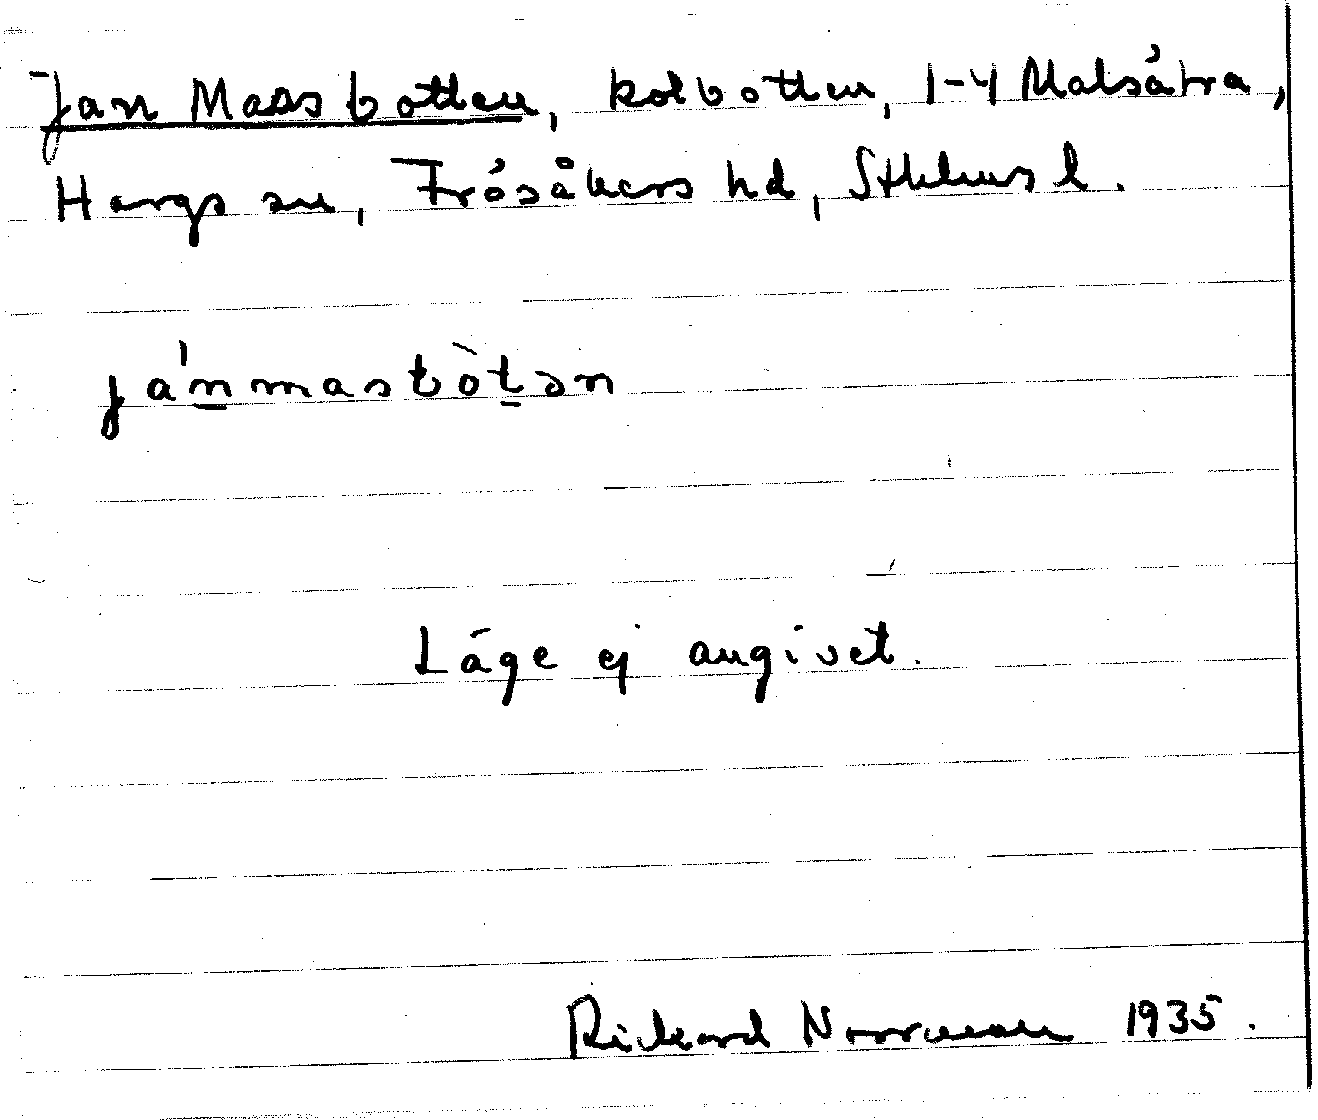 Jan Mass botten, kolbotten, 1-4 Malsätra,
Hargs sn, Frösåkers hd, Sthlms l.
ja'n̲mastòt̲ən
Läge ej angivet.
Rickard Norrman 1935.